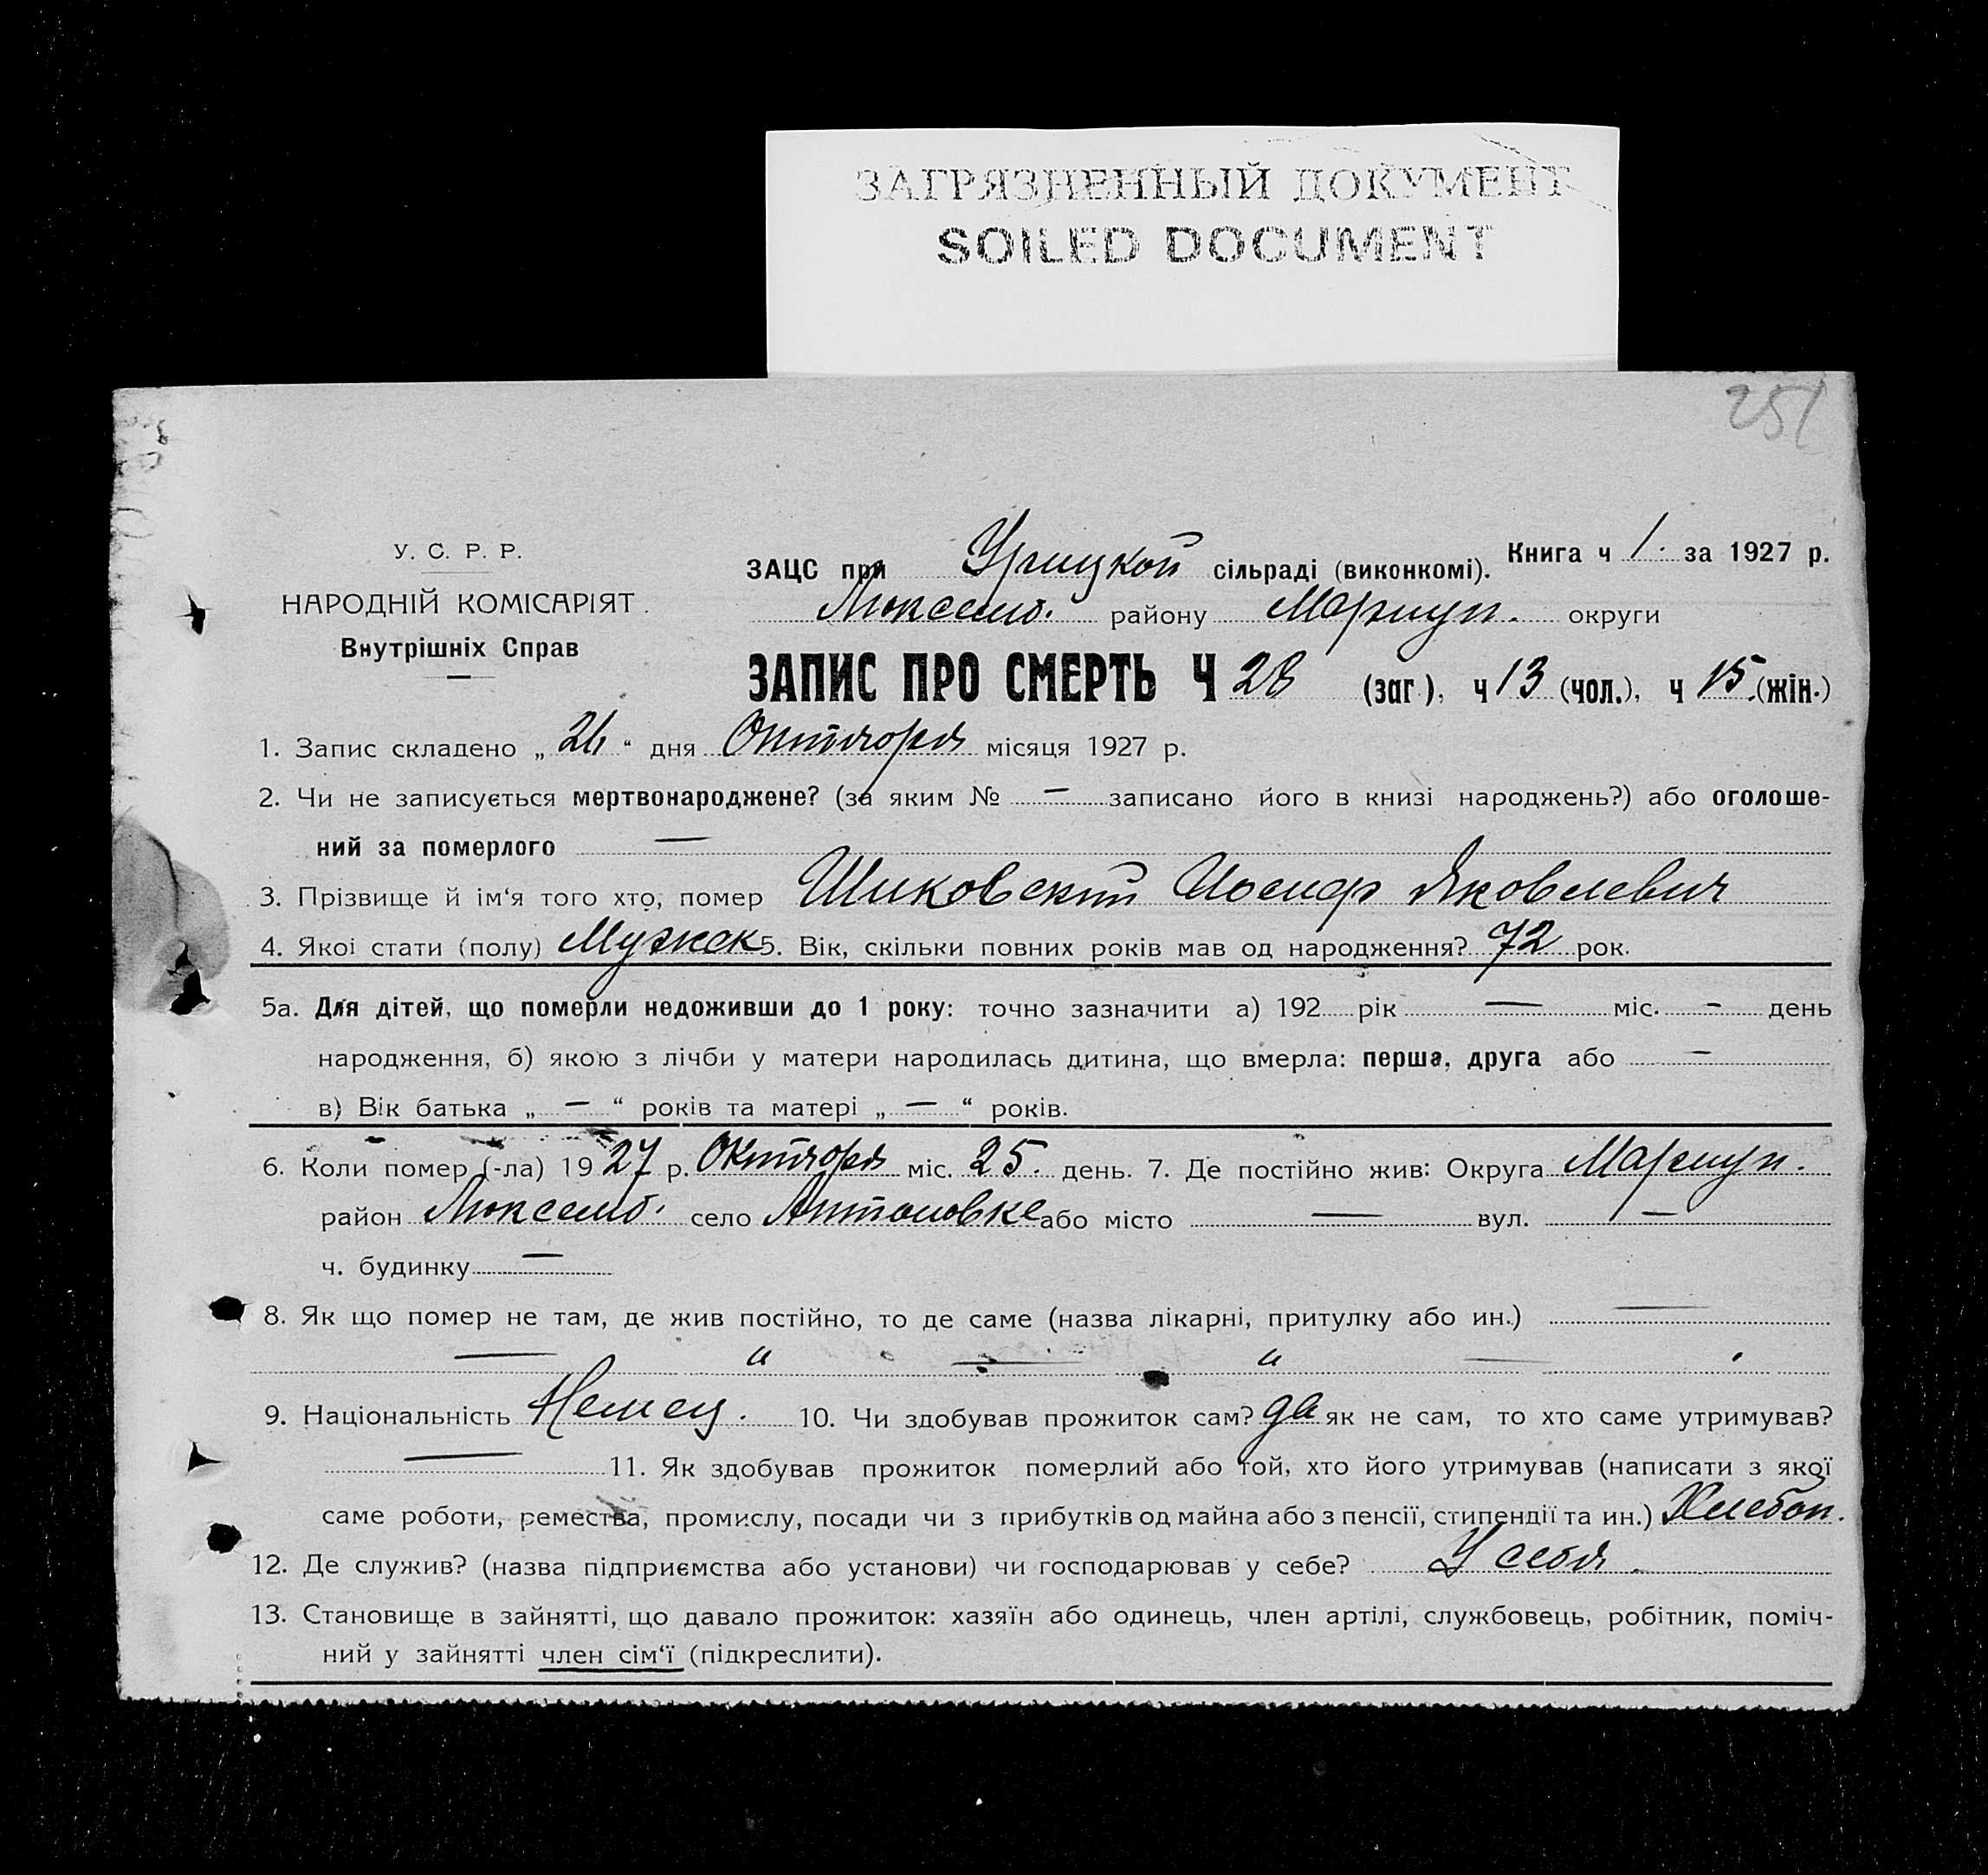 ЗАГРЯЗНЕННЫЙ ДОКУМЕНТ
SOILED DOCUMENT
251
У. С. Р. Р.
НАРОДНІЙ КОМІСАРІЯТ.
Внутрішніх Справ
Книга ч 1. за 1927 р.
ЗАЦС при Урицкой сільраді (виконкомі).
Люксемб. району Мариуп. округи
ЗАПИС ПРО СМЕРТЬ Ч 28 (заг.), ч 13 (чол.), ч 15 (жін.)
1. Запис складено „ 26 “ дня Октября місяця 1927 р.
2. Чи не записується мертвонароджене? (за яким № — записано його в книзі народжень?) або оголоше-
ний за померлого —
3. Прізвище й ім‘я того хто, помер Шиковский Иосиф Яковлевич
4. Якоі стати (полу) Мужск 5. Вік, скільки повних років мав од народження? 72 рок.
5а. Для дітей, що померли недоживши до 1 року: точно зазначити а) 192 рік — міс. — день
народження, б) якою з лічби у матери народилась дитина, що вмерла: перша, друга або —
в) Вік батька „ — “ років та матері „ — “ років.
6. Коли помер (-ла) 1927 р. Октября міс. 25. день. 7. Де постійно жив: Округа Мариуп.
район Люксемб. село Антоновке або місто — вул. —
ч. будинку —
8. Як що помер не там, де жив постійно, то де саме (назва лікарні, притулку або ин.) —
— „ — „ —
9. Національність Немец. 10. Чи здобував прожиток сам? да як не сам, то хто саме утримував?
— 11. Як здобував прожиток померлий або той, хто його утримував (написати з якої
саме роботи, ремества, промислу, посади чи з прибутків од майна або з пенсії, стипендії та ин.) Хлебоп.
12. Де служив? (назва підприємства або установи) чи господарював у себе? У себя.
13. Становище в зайнятті, що давало прожиток: хазяїн або одинець, член артілі, службовець, робітник, поміч-
ний у зайнятті член сім‘ї (підкреслити).